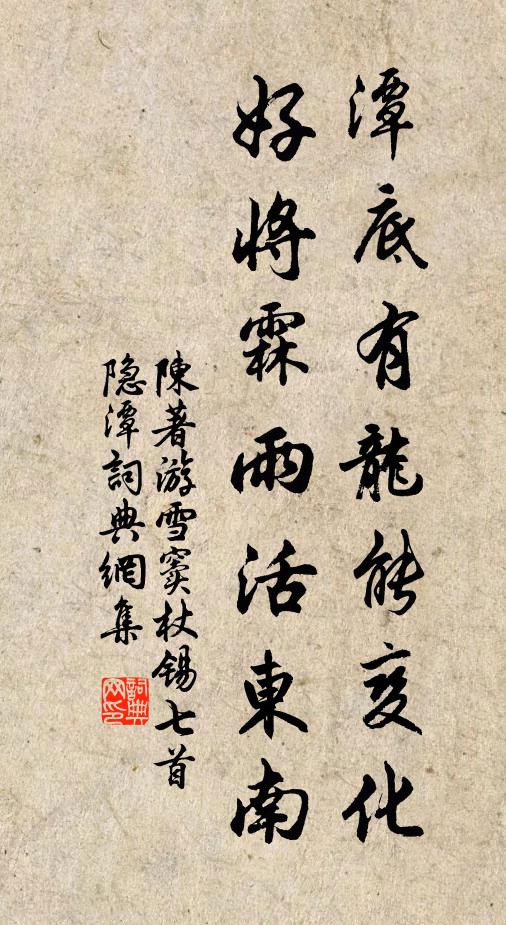 潭底有龍能变化
好將霖雨活東南
陳著游雪窦杖锡七首
隐潭詞典網集
詞典网印